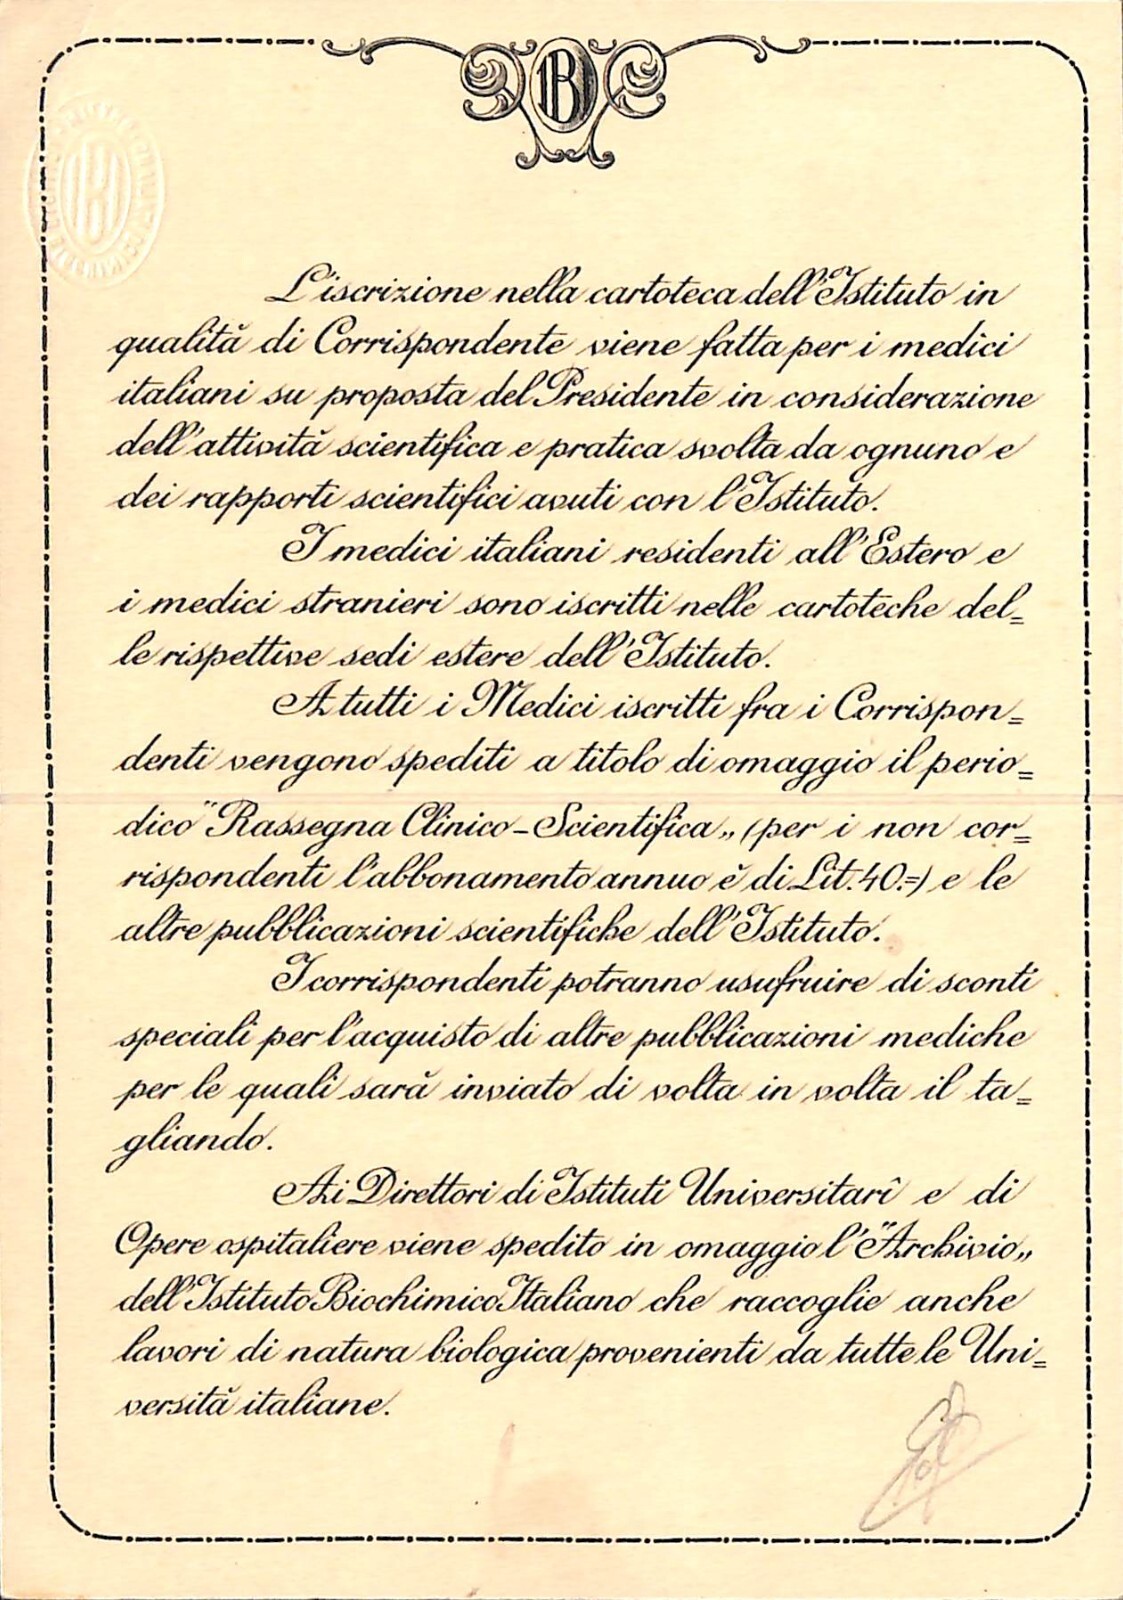 B
L'iscrizione nella cartoteca dell'Istituto in
qualità di Corrispondente viene fatta per i medici
italiani su proposta del Presidente in considerazione
dell'attività scientifica e pratica svolta da ognuno e
dei rapporti scientifici avuti con l'Istituto.
I medici italiani residenti all'Estero e
i medici stranieri sono iscritti nelle cartoteche del=
le rispettive sedi estere dell'Istituto.
A tutti i Medici iscritti fra i Corrispon=
denti vengono spediti a titolo di omaggio il perio=
dico "Rassegna Clinico-Scientifica„ (per i non cor=
rispondenti l'abbonamento annuo è di Lit. 40.=) e le
altre pubblicazioni scientifiche dell'Istituto.
I corrispondenti potranno usufruire di sconti
speciali per l'acquisto di altre pubblicazioni mediche
per le quali sarà inviato di volta in volta il ta=
gliando.
Ai Direttori di Istituti Universitarî e di
Opere ospitaliere viene spedito in omaggio l'"Archivio„
dell'Istituto Biochimico Italiano che raccoglie anche
lavori di natura biologica provenienti da tutte le Uni=
versità italiane.